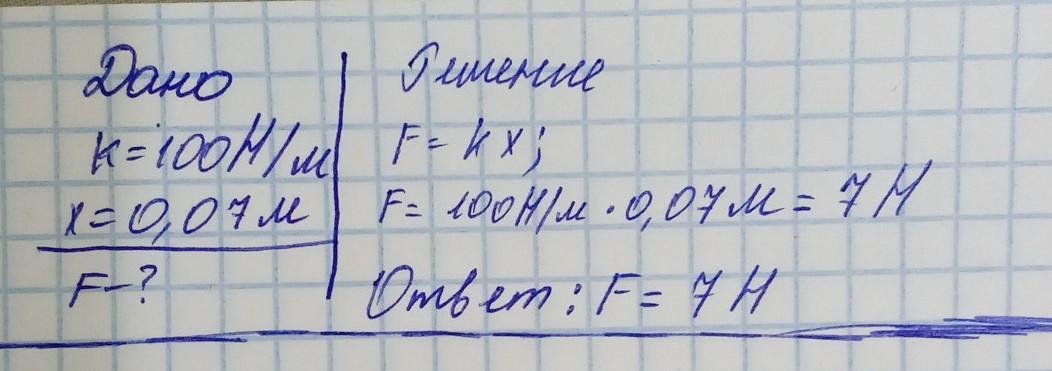 Дано
k=100Н/м
x=0,07м
F-?
Решение
F=kx;
F= 100Н/м·0,07м= 7Н
Ответ: F= 7Н